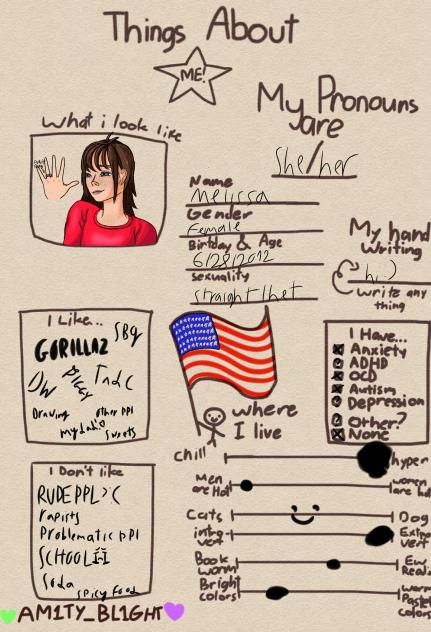 Things About
ME!
My Pronouns
are
She/her
What i look like
Name
Melissa
Gender
Female
Birtday & Age
6/28/2012
Sexuality
straight/het
My hand
writing
hi :)
write any
thing
I Like...
SBG
GORILLAZ
DW
TADC
Drawing
other ppl
my dad
Sweets
where
I live
I Have...
Anxiety
ADHD
OCD
Autism
Depression
Other?
None
I Don't like
RUDE PPL >:C
rapists
Problematic ppl
SCHOOL
Soda
Spicy food
Chill
hyper
Men
are Hot
women
are hot
Cats
Dog
intro-
vert
Extro
vert
Book
worm
Ew
Readi
Bright
colors
warm
Pastel
colors
AM1TY_BL1GHT